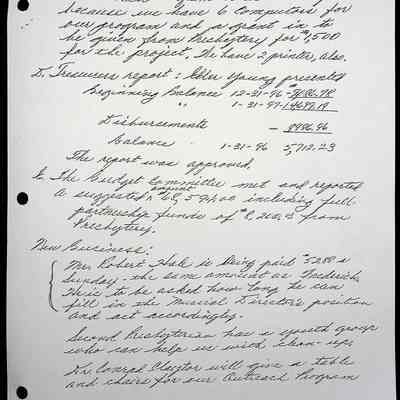 because we have 6 computers for
our program and a grant in to
be given from Presbytery for $1,500
for the project. We have 2 printers, also.
D. Treasurers report: Elder Young presented
Beginning Balance 12-31-96
" 1-31-97
Disbursements - 8986.96
Balance 1-31-96 5,712.23
The report was approved.
E. The Budget Committee met and reported
a suggested amount including full
partnership funds of from
Presbytery.
New Business:
Mr. Robert Hale is being paid a
Sunday, the same amount as Frederick.
He is to be asked how long he can
fill in the Musical Director's position
and act accordingly.
Second Presbyterian has a youth group
who can help us w/ clean-up.
Dr. Conrad Claytor will give a table
and chairs for our Outreach Program